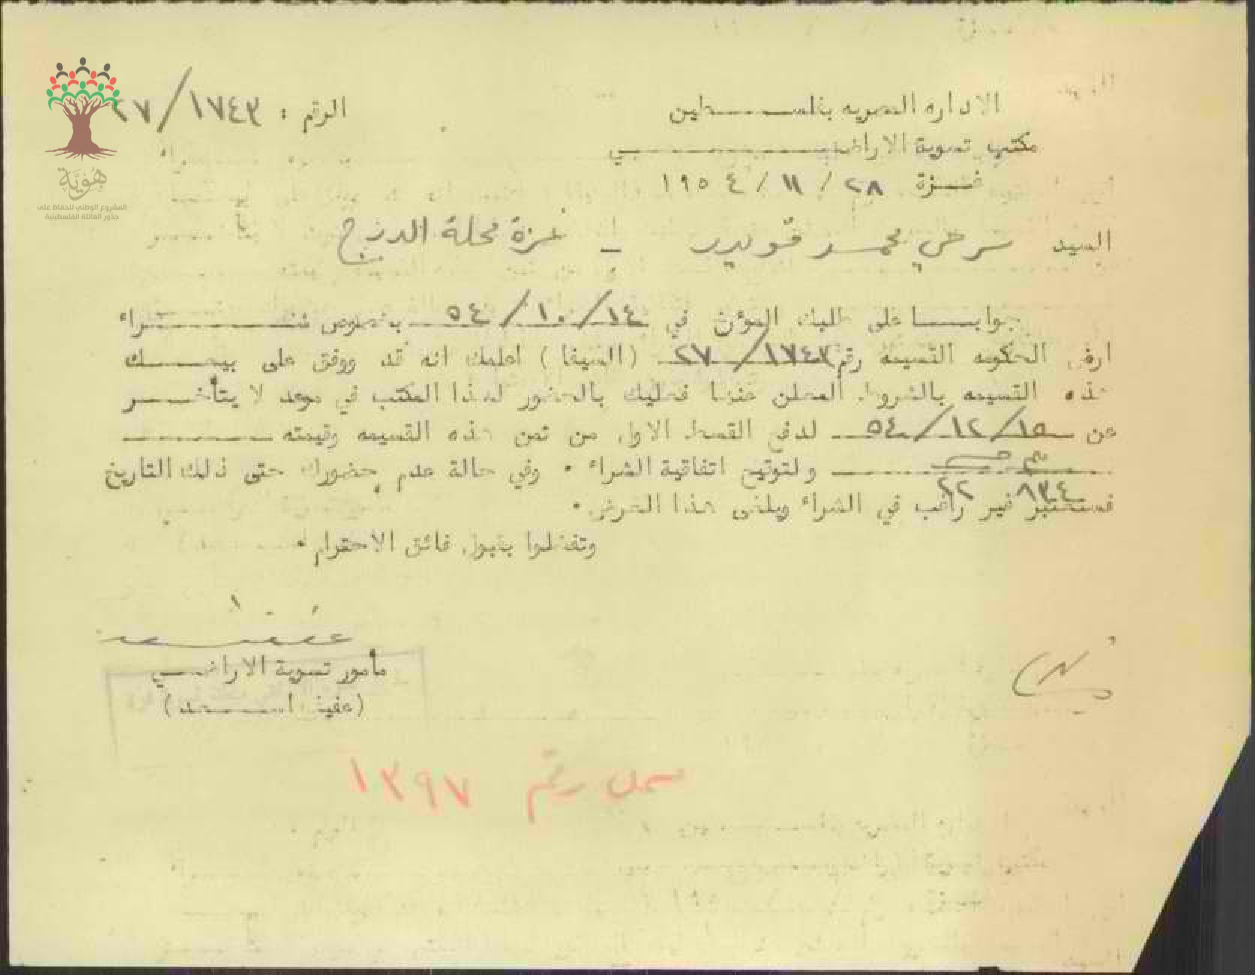 الاداره المصريه بفلسطين
الرقم : ٢٧/١٧٤٣
مكتب تسوية الاراضي
غزة ٢٨ / ١١ / ١٩٥٤
السيد سرحي محمد قويدر - غزة محلة الدرج
جوابا على طلبك المؤرخ في ١٤/١٠/٥٤ بخصوص شراء
ارض الحكومه القسيمه رقم ٢٧/١٧٤٣ (السيفا) اعلمك انه قد ووفق على بيعك
هذه القسيمه بالشروط المعلن عنها فعليك بالحضور لهذا المكتب في موعد لا يتأخر
عن ١٥/١٢/٥٤ لدفع القسط الاول من ثمن هذه القسيمه وقيمته
ولتوقيع اتفاقية الشراء . وفي حالة عدم حضورك حتى ذلك التاريخ
٨٣٤ ٢٢
فستعتبر غير راغب في الشراء ويلغى هذا العرض .
وتفضلوا بقبول فائق الاحترام .
مأمور تسوية الاراضي
(عفيف اسعد)
سجل رقم ١٣٩٧
هوية
المشروع الوطني للحفاظ على
جذور العائلة الفلسطينية